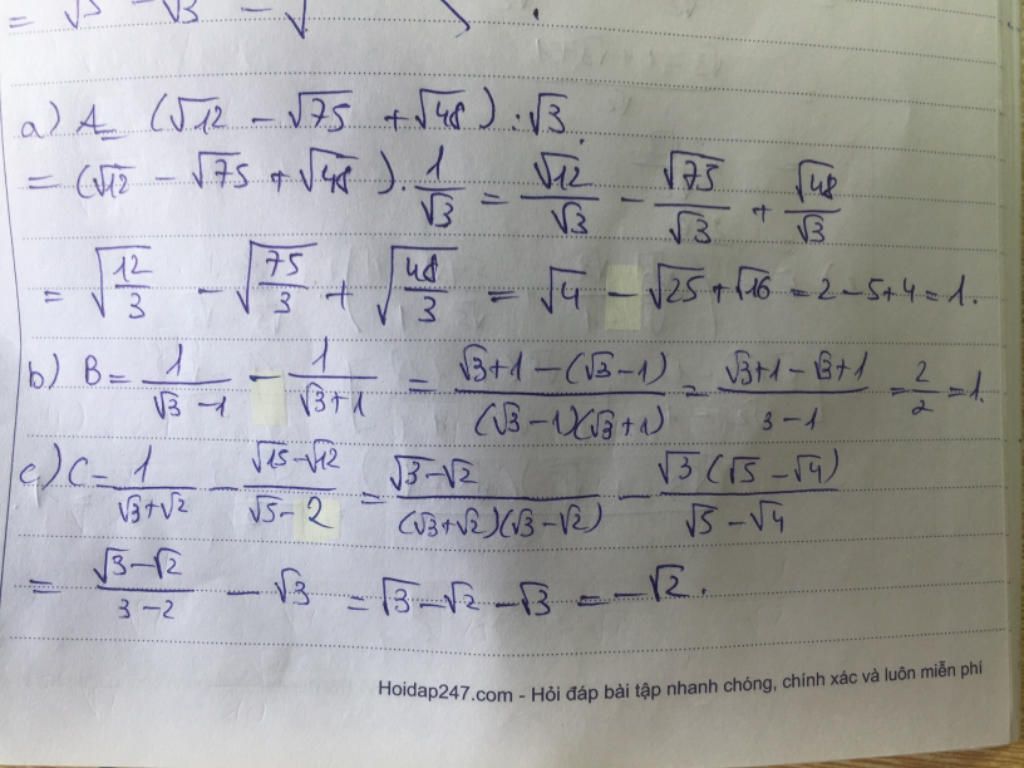 = √3 - √3 - √
a) A = (√12 - √75 + √48) : √3.
= (√12 - √75 + √48) . 1/√3 = √12/√3 - √75/√3 + √48/√3
= √(12/3) - √(75/3) + √(48/3) = √4 - √25 + √16 = 2 - 5 + 4 = 1.
b) B = 1/(√3 - 1) - 1/(√3 + 1) = (√3 + 1 - (√3 - 1))/((√3 - 1)(√3 + 1)) = (√3 + 1 - √3 + 1)/(3 - 1) = 2/2 = 1.
c) C = 1/(√3 + √2) - (√15 - √12)/(√5 - 2) = (√3 - √2)/((√3 + √2)(√3 - √2)) - √3(√5 - √4)/(√5 - √4)
= (√3 - √2)/(3 - 2) - √3 = √3 - √2 - √3 = -√2.
Hoidap247.com - Hỏi đáp bài tập nhanh chóng, chính xác và luôn miễn phí